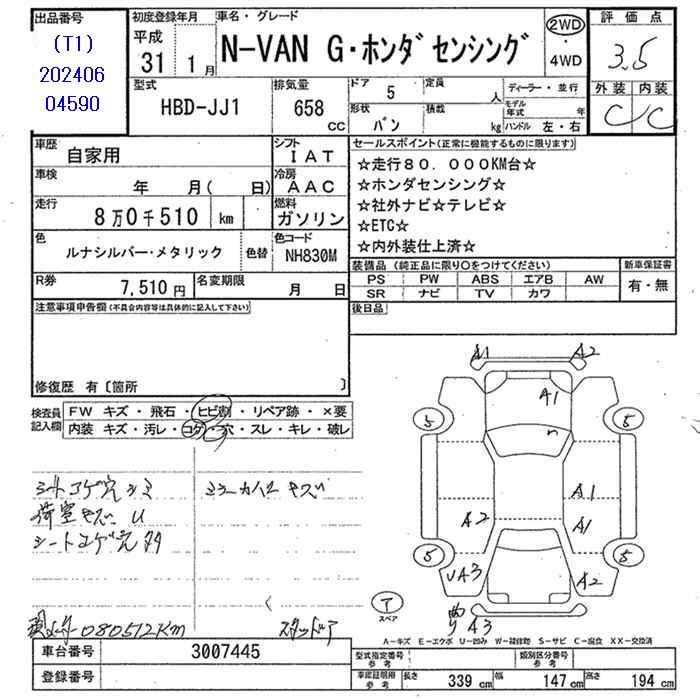 出品番号
(T1)
202406
04590
初度登録年月
平成
31年 1月
車名・グレード
N-VAN G・ホンダセンシング
2WD
・
4WD
評価点
3.5
外装 内装
C C
型式
HBD-JJ1
排気量
658
CC
ドア 5
定員 人
形状
バン
積載 kg
ディーラー・並行
モデル年式 年
ハンドル 左・右
車歴
自家用
シフト
IAT
車検
年 月( 日)
冷房
AAC
走行
8万0千510 km
燃料
ガソリン
色
ルナシルバー・メタリック
色替
色コード
NH830M
R券
7,510円
名変期限
月 日
セールスポイント(正常に機能するものに限ります)
☆走行80.000KM台☆
☆ホンダセンシング☆
☆社外ナビ☆テレビ☆
☆ETC☆
☆内外装仕上済☆
装備品(純正品に限り○をつけてください)
PS PW ABS エアB AW
SR ナビ TV カワ
新車保証書
有・無
後日品
注意事項申告欄(不具合内容等は具体的に記入して下さい)
修復歴 有〔箇所 〕
検査員記入欄
FW キズ・飛石・ヒビ割・リペア跡・×要
内装 キズ・汚レ・コゲ・穴・スレ・キレ・破レ
シートコゲ穴 シミ
ミラーカバーキズ
荷室キズ U
シートコゲ穴
080512Km
スタッドレスタイヤ
A1 A2
A1
5 5
A1
A2 A1
5 5
UA3 A2
ア
スペア
曲り A3
A－キズ E－エクボ U－凹み W－補修跡 S－サビ C－腐食 XX－交換済
車台番号
3007445
登録番号
型式指定番号
参考
類別区分番号
参考
車庫証明用
参考
長さ 339 cm 幅 147 cm 高さ 194 cm